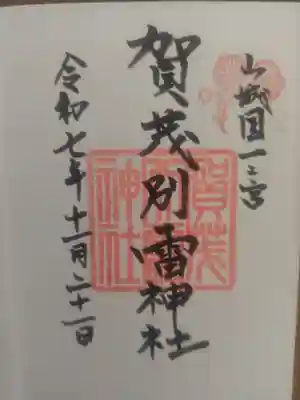 山城国一之宮
賀茂別雷神社
令和七年十一月二十一日
賀茂別雷神社